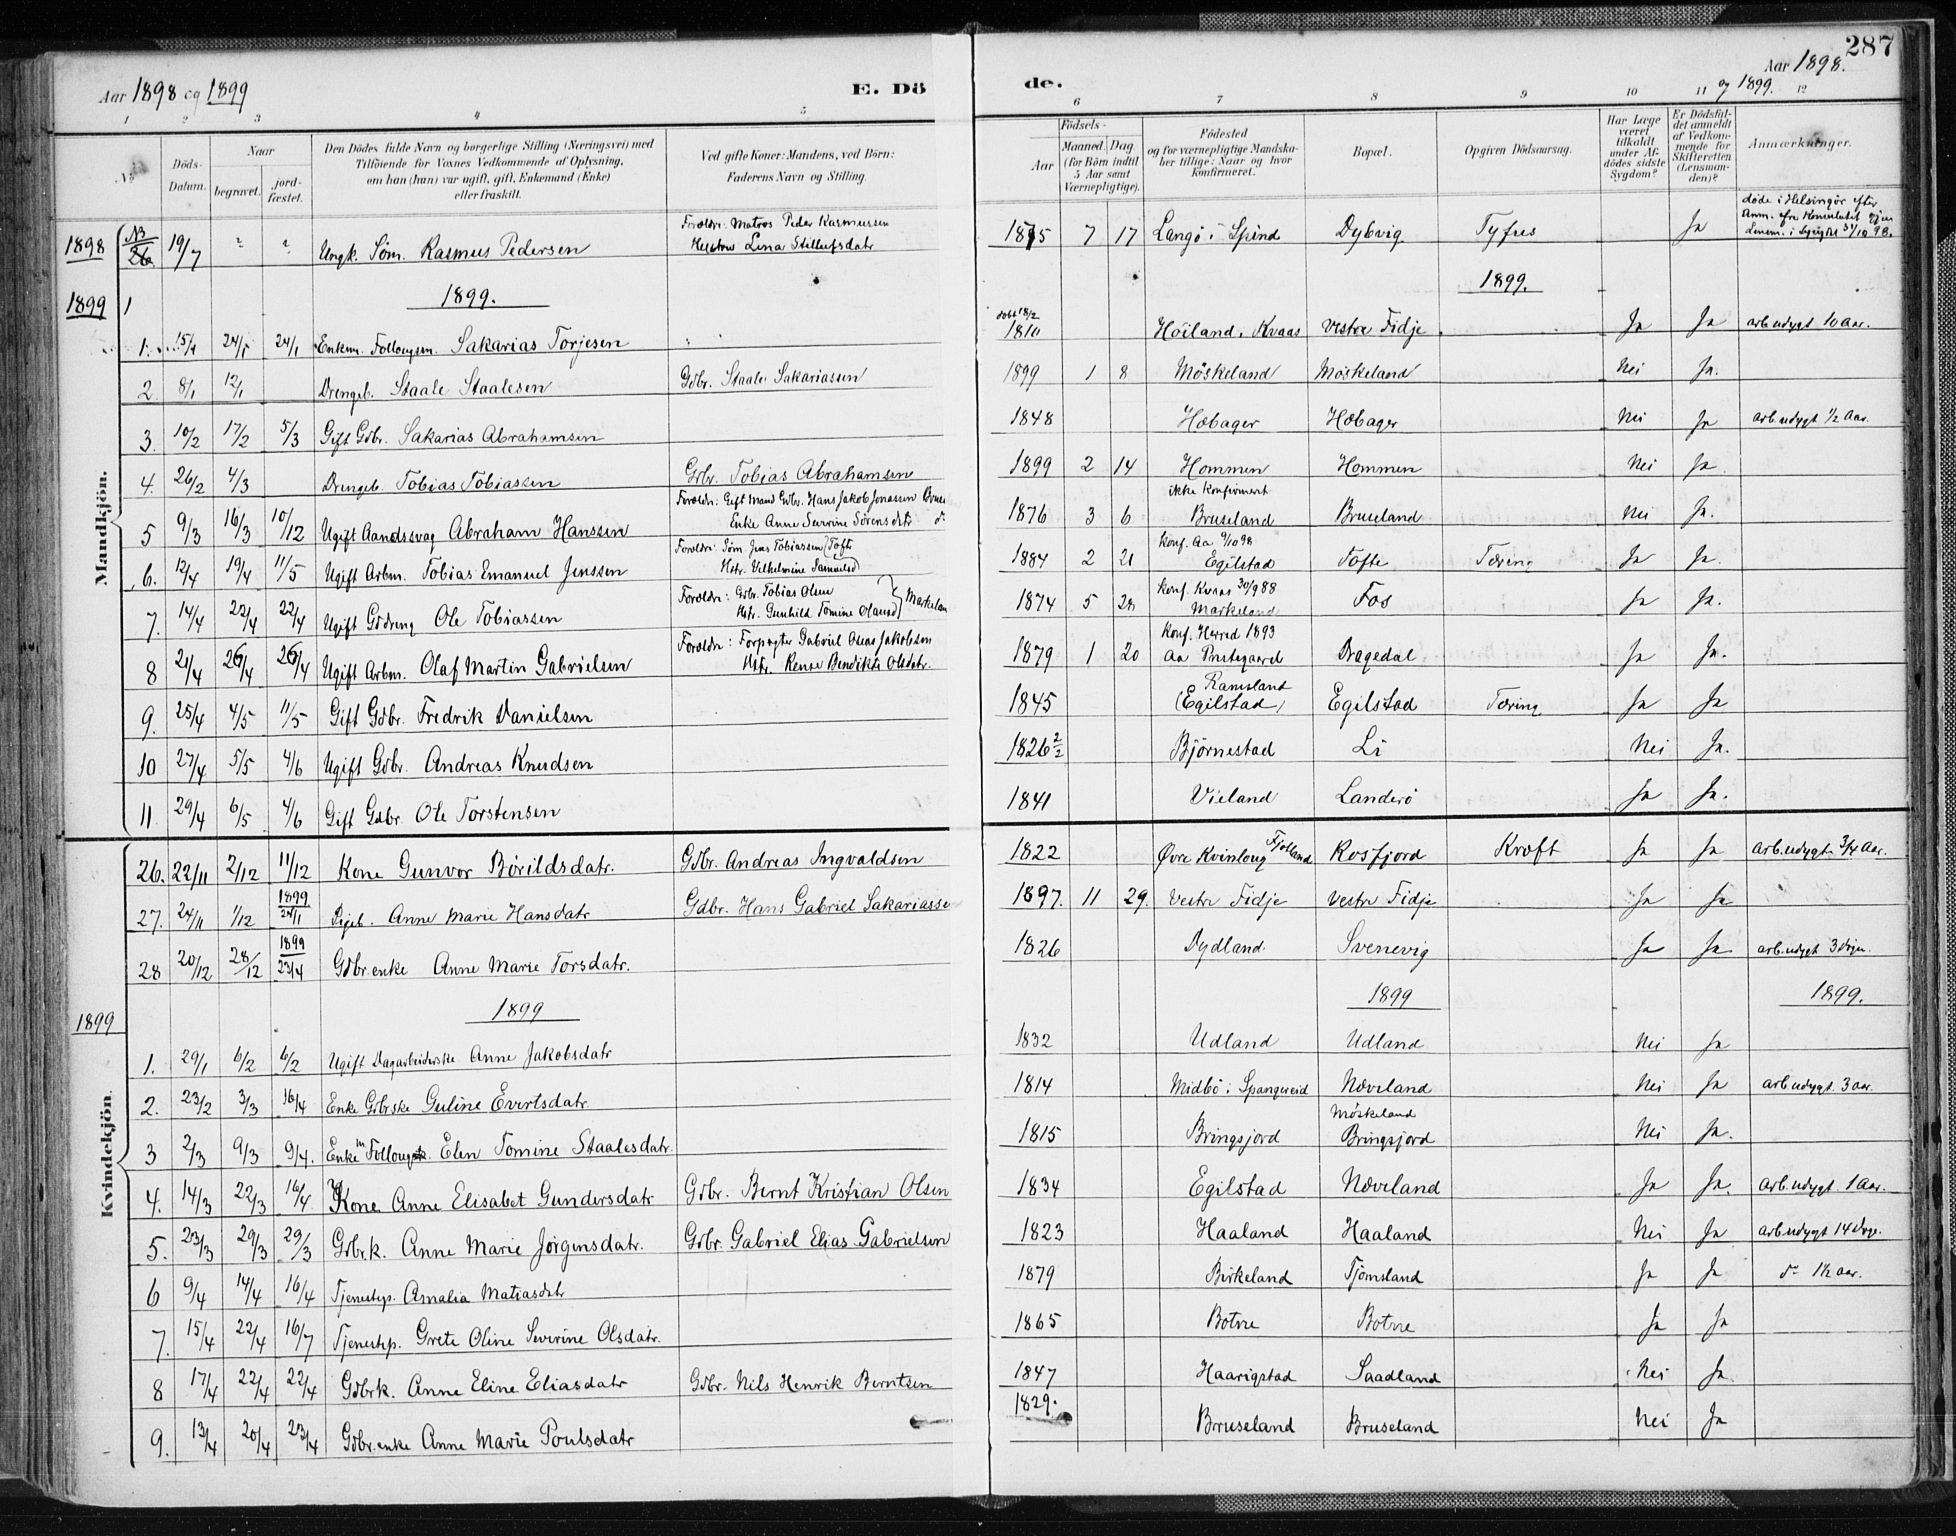 287
Aar 1898 og 1899
E. Dö
de.
Aar 1898.
og 1899.
1 2 3 4 5 6 7 8 9 10 11 12
No
Döds-Datum.
Naar
begravet.
jord-fæstet.
Den Dödes fulde Navn og borgerlige Stilling (Næringsvei) med
Tilföiende for Voxnes Vedkommende af Oplysning,
om han (hun) var ugift, gift, Enkemand (Enke)
eller fraskilt.
Ved gifte Koner: Mandens, ved Börn:
Faderens Navn og Stilling.
Födsels-
Aar
Maaned. Dag
(for Börn indtil
5 Aar samt
Værnepligtige).
Födested
og for værnepligtige Mandska-
ber tillige: Naar og hvor
konfirmeret.
Bopæl.
Opgiven Dödsaarsag.
Har Læge
været
tilkaldt
under Af-
dödes sidste
Sygdom?
Er Dödsfal-
det anmeldt
af Vedkom-
mende for
Skifteretten
(Lensman-
den)?
Anmærkninger.
Mandkjön.
1898 NB 26 19/7 " " Ungk. Söm. Rasmus Pedersen Foreldr: Matros Peder Rasmussen Lina 1875 7 17 Langö i Spind Dybvig Tyfus Ja döde i Helsingör efter Anm. fra Konsulatet 31/10 98.
1899 1 1899. 1899.
1. 15/1 24/1 24/1 Enkem. Sakarias Torjesen " födt 18/2 1810 Höiland, Kvaas Vestre Fidje Ja Ja arb.udygt 10 aar.
2. 8/1 12/1 Drengeb. Staale Staalesen Gdbr. Staale Sakariassen 1899 1 8 Möskeland Möskeland Nei Ja.
3. 10/2 17/2 5/3 Gift Gdbr. Sakarias Abrahamsen 1848 Hæbager Hæbager Nei Ja arb.udygt 1/2 aar.
4. 26/2 4/3 Drengeb. Tobias Tobiassen Gdbr. Tobias Abrahamsen 1899 2 14 Hommen Hommen Nei Ja.
5 9/3 16/3 10/12 Ugift Aandssvag Abraham Hanssen Foreldr: Gift Mand Gdbr. Hans Jakob Jonassen Enke Anne Severine Sörensdtr 1876 3 6 ikke konfirmert Bruseland Bruseland Nei Ja.
6. 12/4 19/4 11/5 Ugift Arbm. Tobias Emanuel Jenssen Foreldr: Söm. Jens Tobiassen Tofte Hstr. Vilhelmine Samuelsd 1884 2 21 konf. Aa 9/10 98 Egilstad Tofte Tæring Ja Ja.
7. 14/4 22/4 22/4 Ugift Gddreng Ole Tobiassen Foreldr: Gdbr. Tobias Olsen Hstr. Gunhild Tomine Olausd 1874 5 28 konf. Kvaas 30/9 88 Markeland Fos Ja Ja.
8 21/4 26/4 26/4 Ugift Arbm. Olaf Martin Gabrielsen Foreldr: Forpagter Gabriel Osias Jakobsen Hstr. Bendikte Olsdtr. 1879 1 20 konf. Herred 1893 Aa Prestegaard Dragedal Ja Ja.
9. 25/4 4/5 11/5 Gift Gdbr. Fredrik Danielsen 1845 Ramsland (Egilstad) Egilstad Tæring Ja Ja
10 27/4 5/5 4/6 Ugift Gdbr. Andreas Knudsen 1826 2/2 Björnestad Li Nei Ja.
11 29/4 6/5 4/6 Gift Gdbr. Ole Torstensen 1841 Vieland Landerö Ja Ja.
Kvindekjön.
26. 22/11 2/12 11/12 Kone Gunvor Börildsdatr. Gdbr. Andreas Ingvaldsen 1822 Övre Kvinlaug Fjotland Rosfjord Kræft Ja Ja arb.udygt 3/4 aar.
27. 24/11 1/12 1899 24/1 Pigeb. Anne Marie Hansdatr Gdbr. Hans Gabriel Sakariasse 1897. 11 29. Vestre Fidje Vestre Fidje Ja Ja
28 20/12 28/12 1899 23/4 Gdbr.enke Anne Marie Torsdatr. 1826 Dydland Svenevig Ja Ja arb.udygt 3 Uger
1899 1899 1899 1899.
1. 29/1 6/2 6/2 Ugift Dagarbeiderske Anne Jakobsdatr 1832 Udland Udland Nei Ja
2. 23/2 3/3 16/4 Enke Gdbrske Guline Evertsdatr 1814 Midbö i Spangereid Næveland Nei Ja arb.udygt. 3 aar.
3 2/3 9/3 9/4. Enke Elen Tomine Staalesdatr. 1815 Bringsjord Möskeland Bringsjord Nei Ja.
4. 14/3 22/3 16/4 Kone Anne Elisabet Gundersdatr Gdbr. Bernt Kristian Olsen 1834 Egilstad Næveland Ja Ja. arb.udygt. 1 aar.
5. 23/3 29/3 29/3 Gdbr.k. Anne Marie Jörgensdatr. Gdbr. Gabriel Elias Gabrielsen 1823 Haaland Haaland Nei Ja arb.udygt 14 Dage.
6 9/4 14/4 16/4 Tjenestep. Amalia Matiasdatr 1879 Birkeland Tjomsland Ja Ja do 1 1/2 aar.
7. 15/4 22/4 16/7 Tjenestep. Grete Oline Severine Olsdatr. 1865 Botne Botne Ja Ja
8 17/4 22/4 22/4 Gdbrk. Anne Eline Eliasdatr Gdbr. Nils Henrik Berntsen 1847 Haarigstad Saadland Nei Ja.
9. 13/4 20/4 23/4 Gdbr.enke Anne Marie Poulsdatr 1829. Bruseland Bruseland Nei Ja